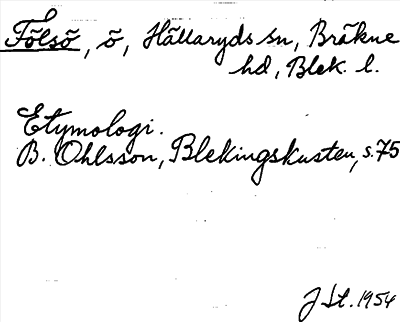 Fölsö, ö, Hällaryds sn, Bräkne
hd, Blek. l.
Etymologi.
B. Ohlsson, Blekingskusten, s.75
J St. 1954